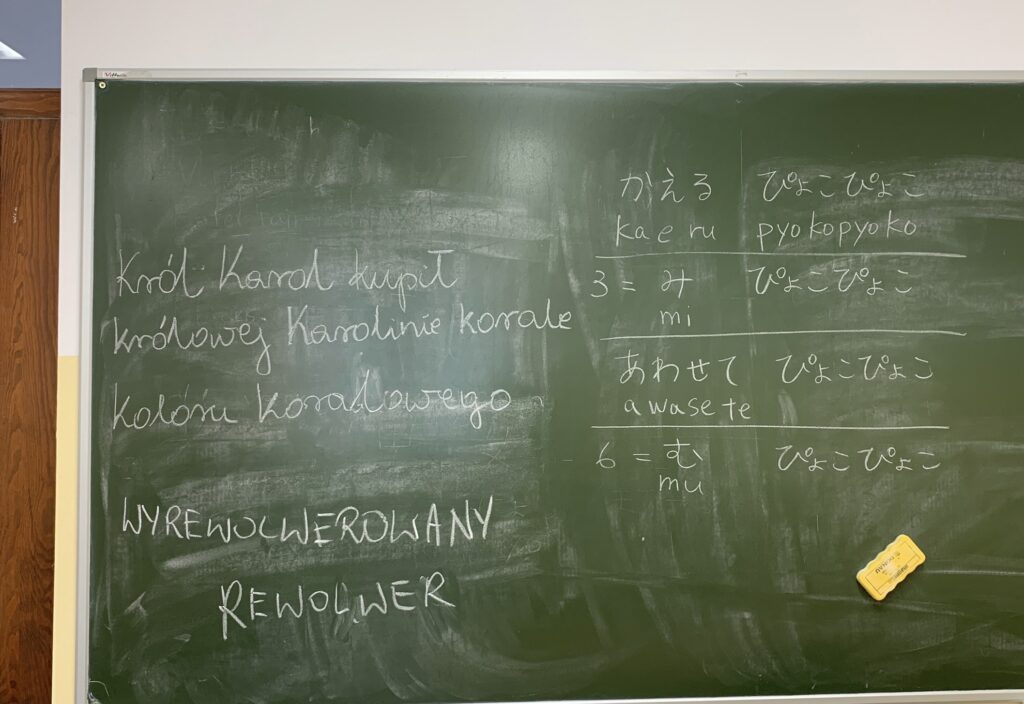 Król Karol kupił
królowej Karolinie korale
koloru koralowego
WYREWOLWEROWANY
REWOLWER
かえる ぴょこぴょこ
kaeru pyokopyoko
3 = み ぴょこぴょこ
mi
あわせて ぴょこぴょこ
awasete
6 = む ぴょこぴょこ
mu